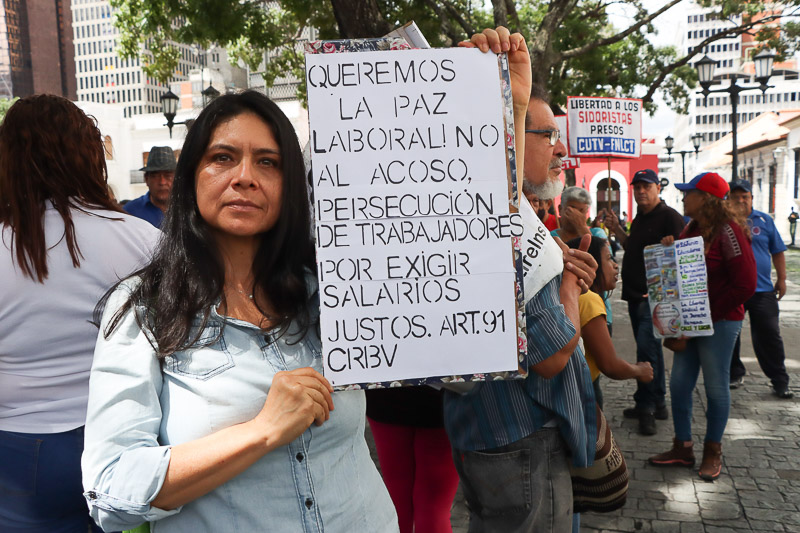 QUEREMOS
LA PAZ
LABORAL! NO
AL ACOSO,
PERSECUCIÓN
DE TRABAJADORES
POR EXIGIR
SALARIOS
JUSTOS. ART. 91
CRBV
LIBERTAD A LOS
SIDORISTAS
PRESOS
CUTV-FNLCT